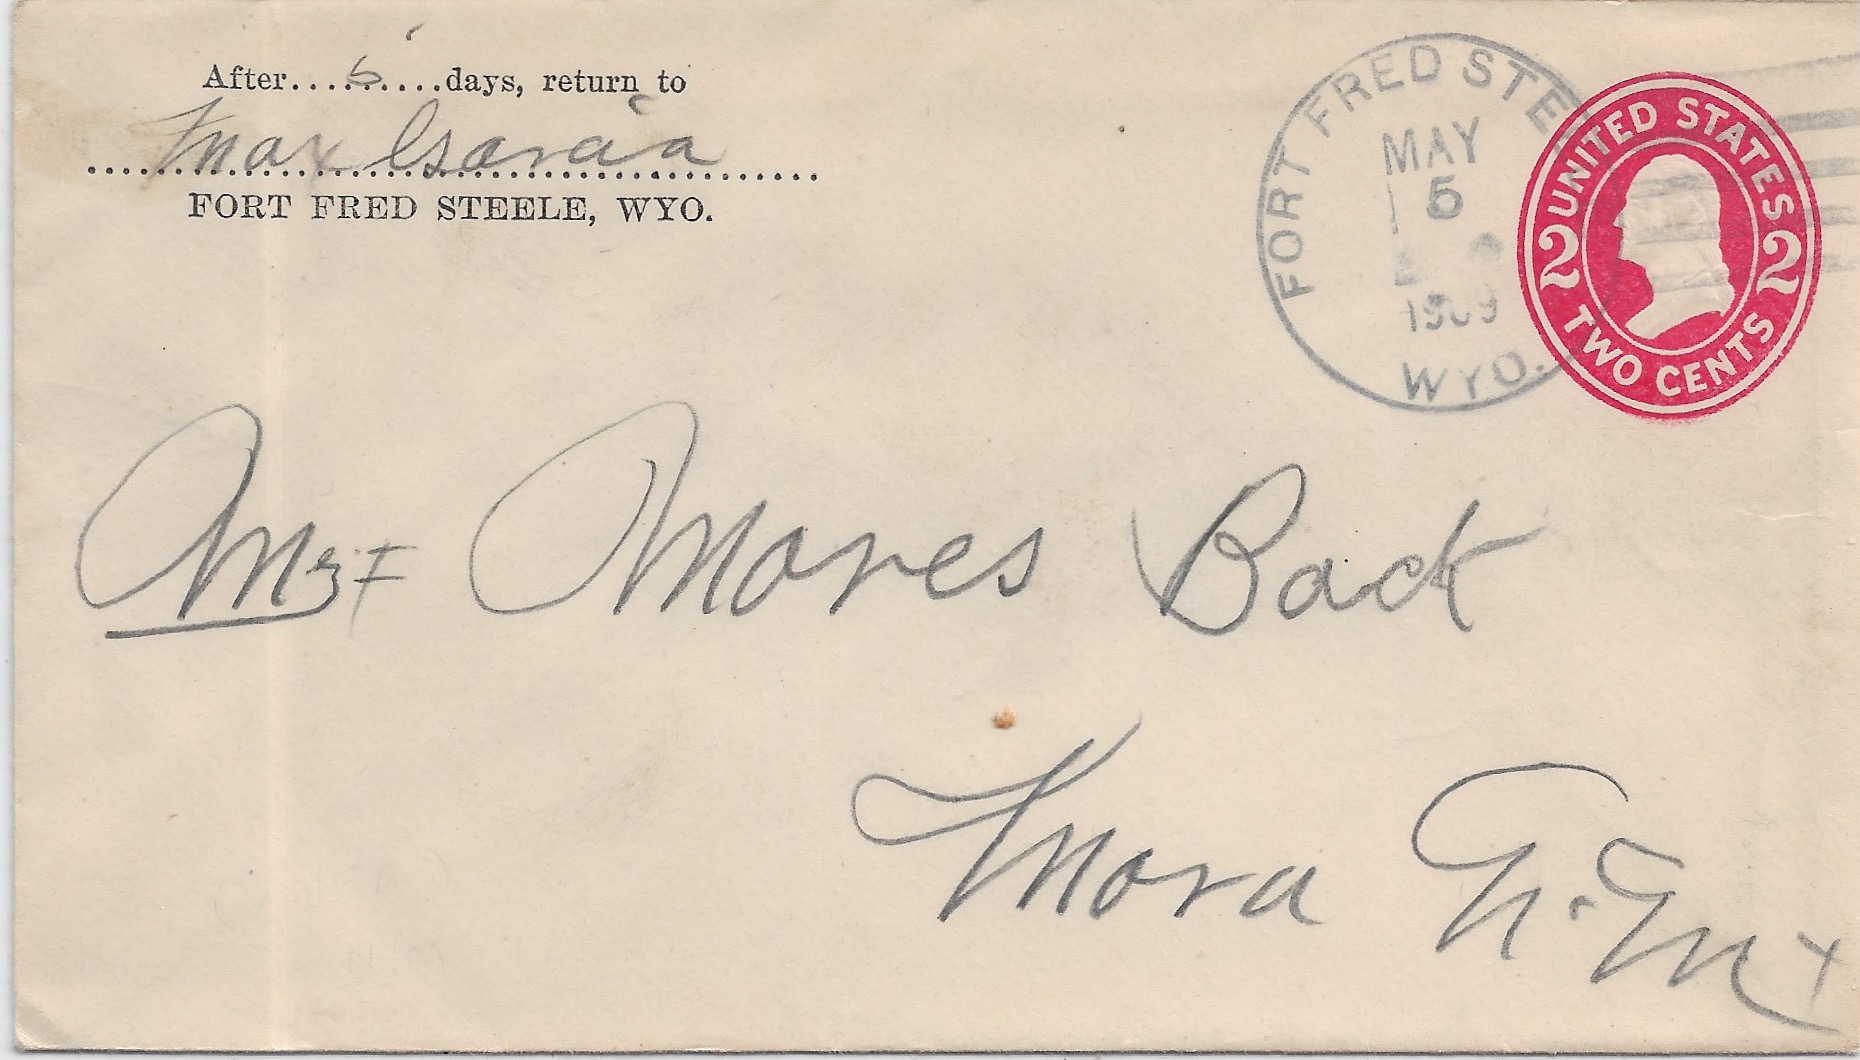 After....5....days, return to
Max Garcia
FORT FRED STEELE, WYO.
FORT FRED STEE
MAY
5
1909
WYO.
UNITED STATES
2 2
TWO CENTS
Mores Back
Mora N. M